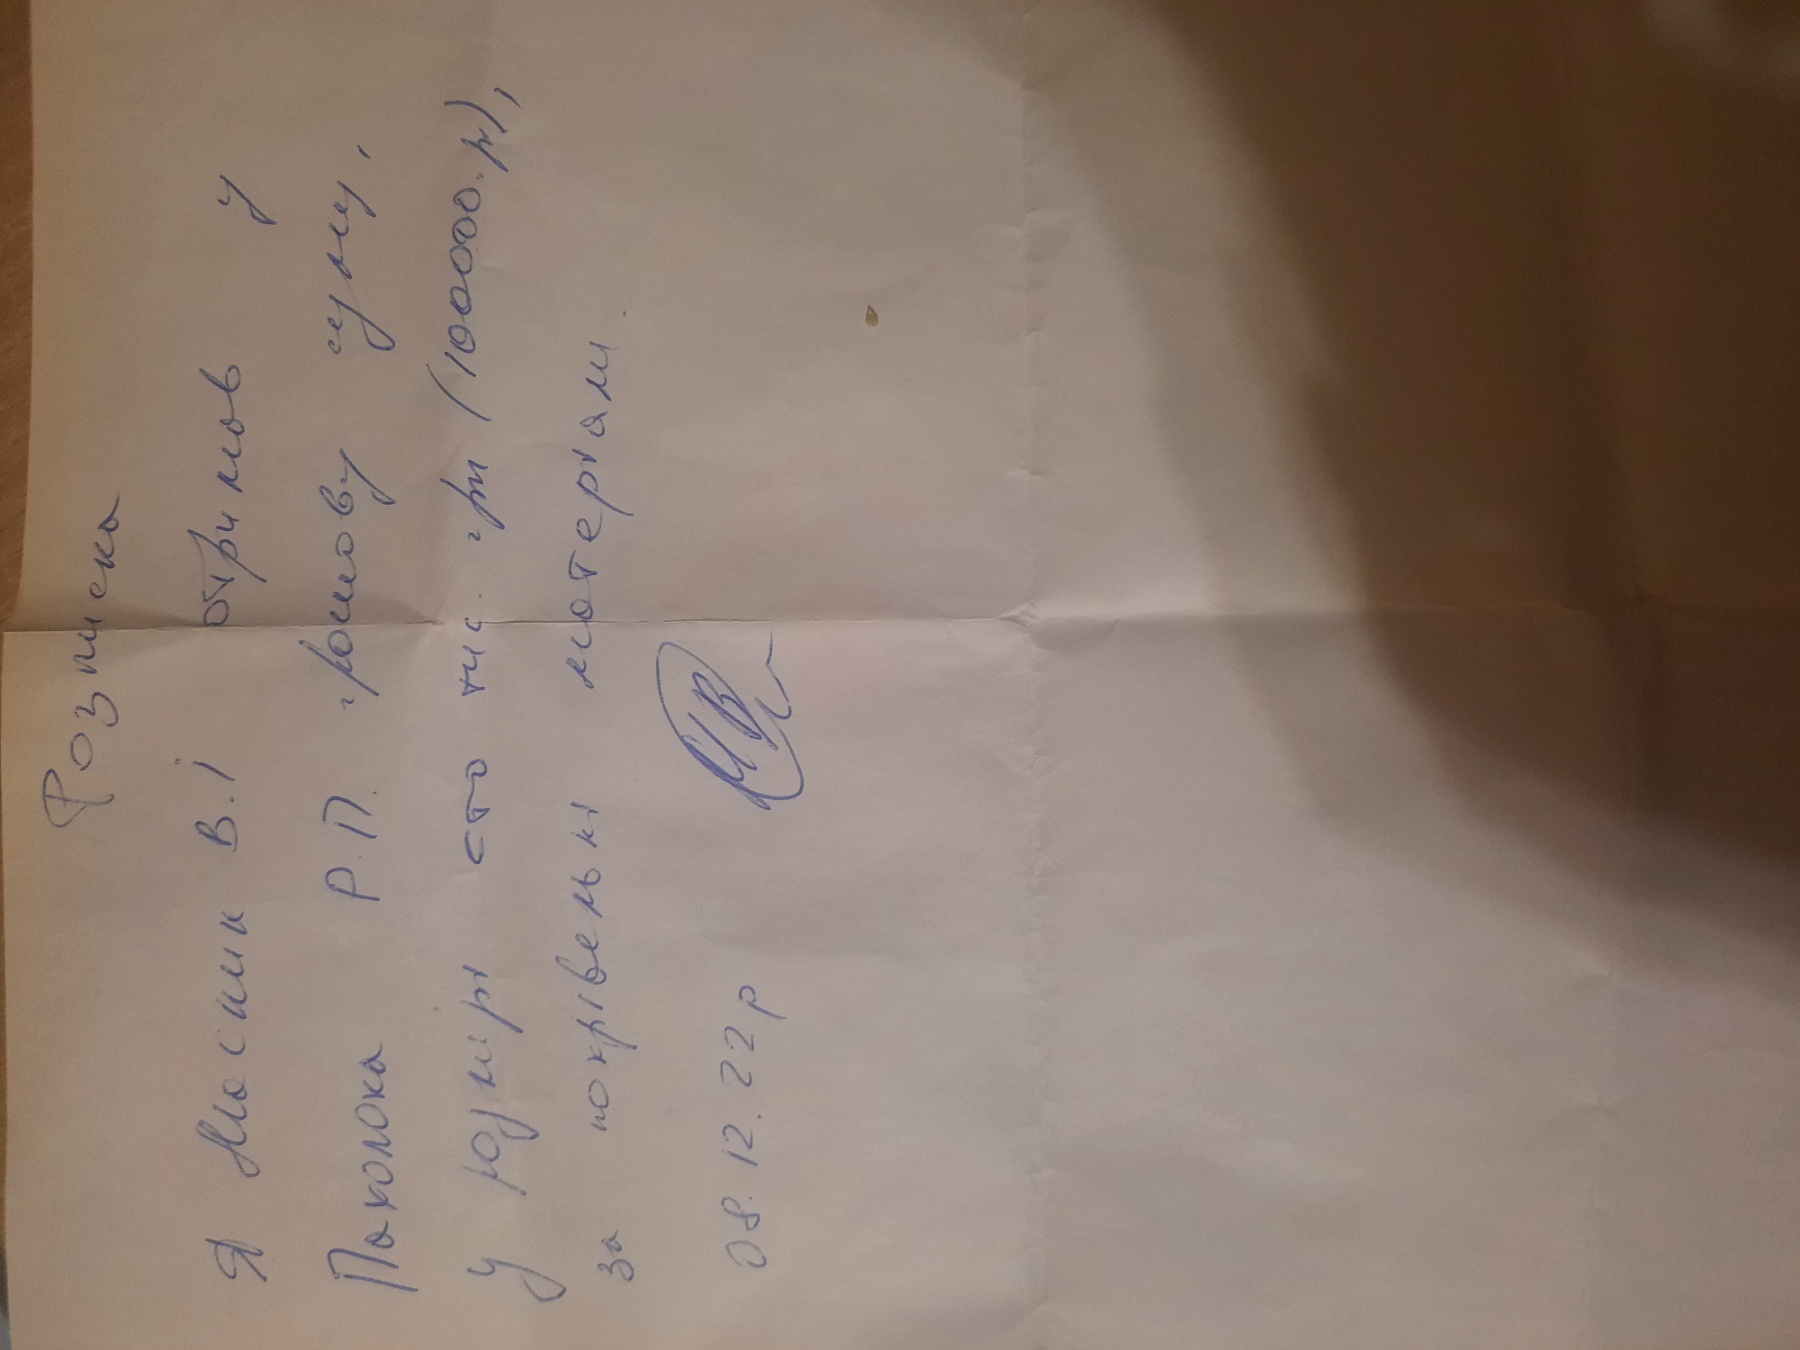 Розписка
Я Масик В.І отримав у
Паколока Р.П. грошову суму,
у розмірі сто тис. грн (100000.р),
за покрівельні матеріали.
08.12.22р